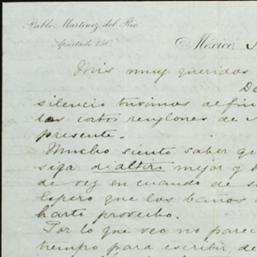 Pablo Martinez del Rio
Apartado
México
Mis muy queridos
De
silencio tuvimos al fin
los cortos renglones de
presente.
Mucho siento saber q
siga mejor y
de vez en cuando de s
Espero que los baños
harto provecho.
Por lo que veo no parec
tiempo para escribir, de